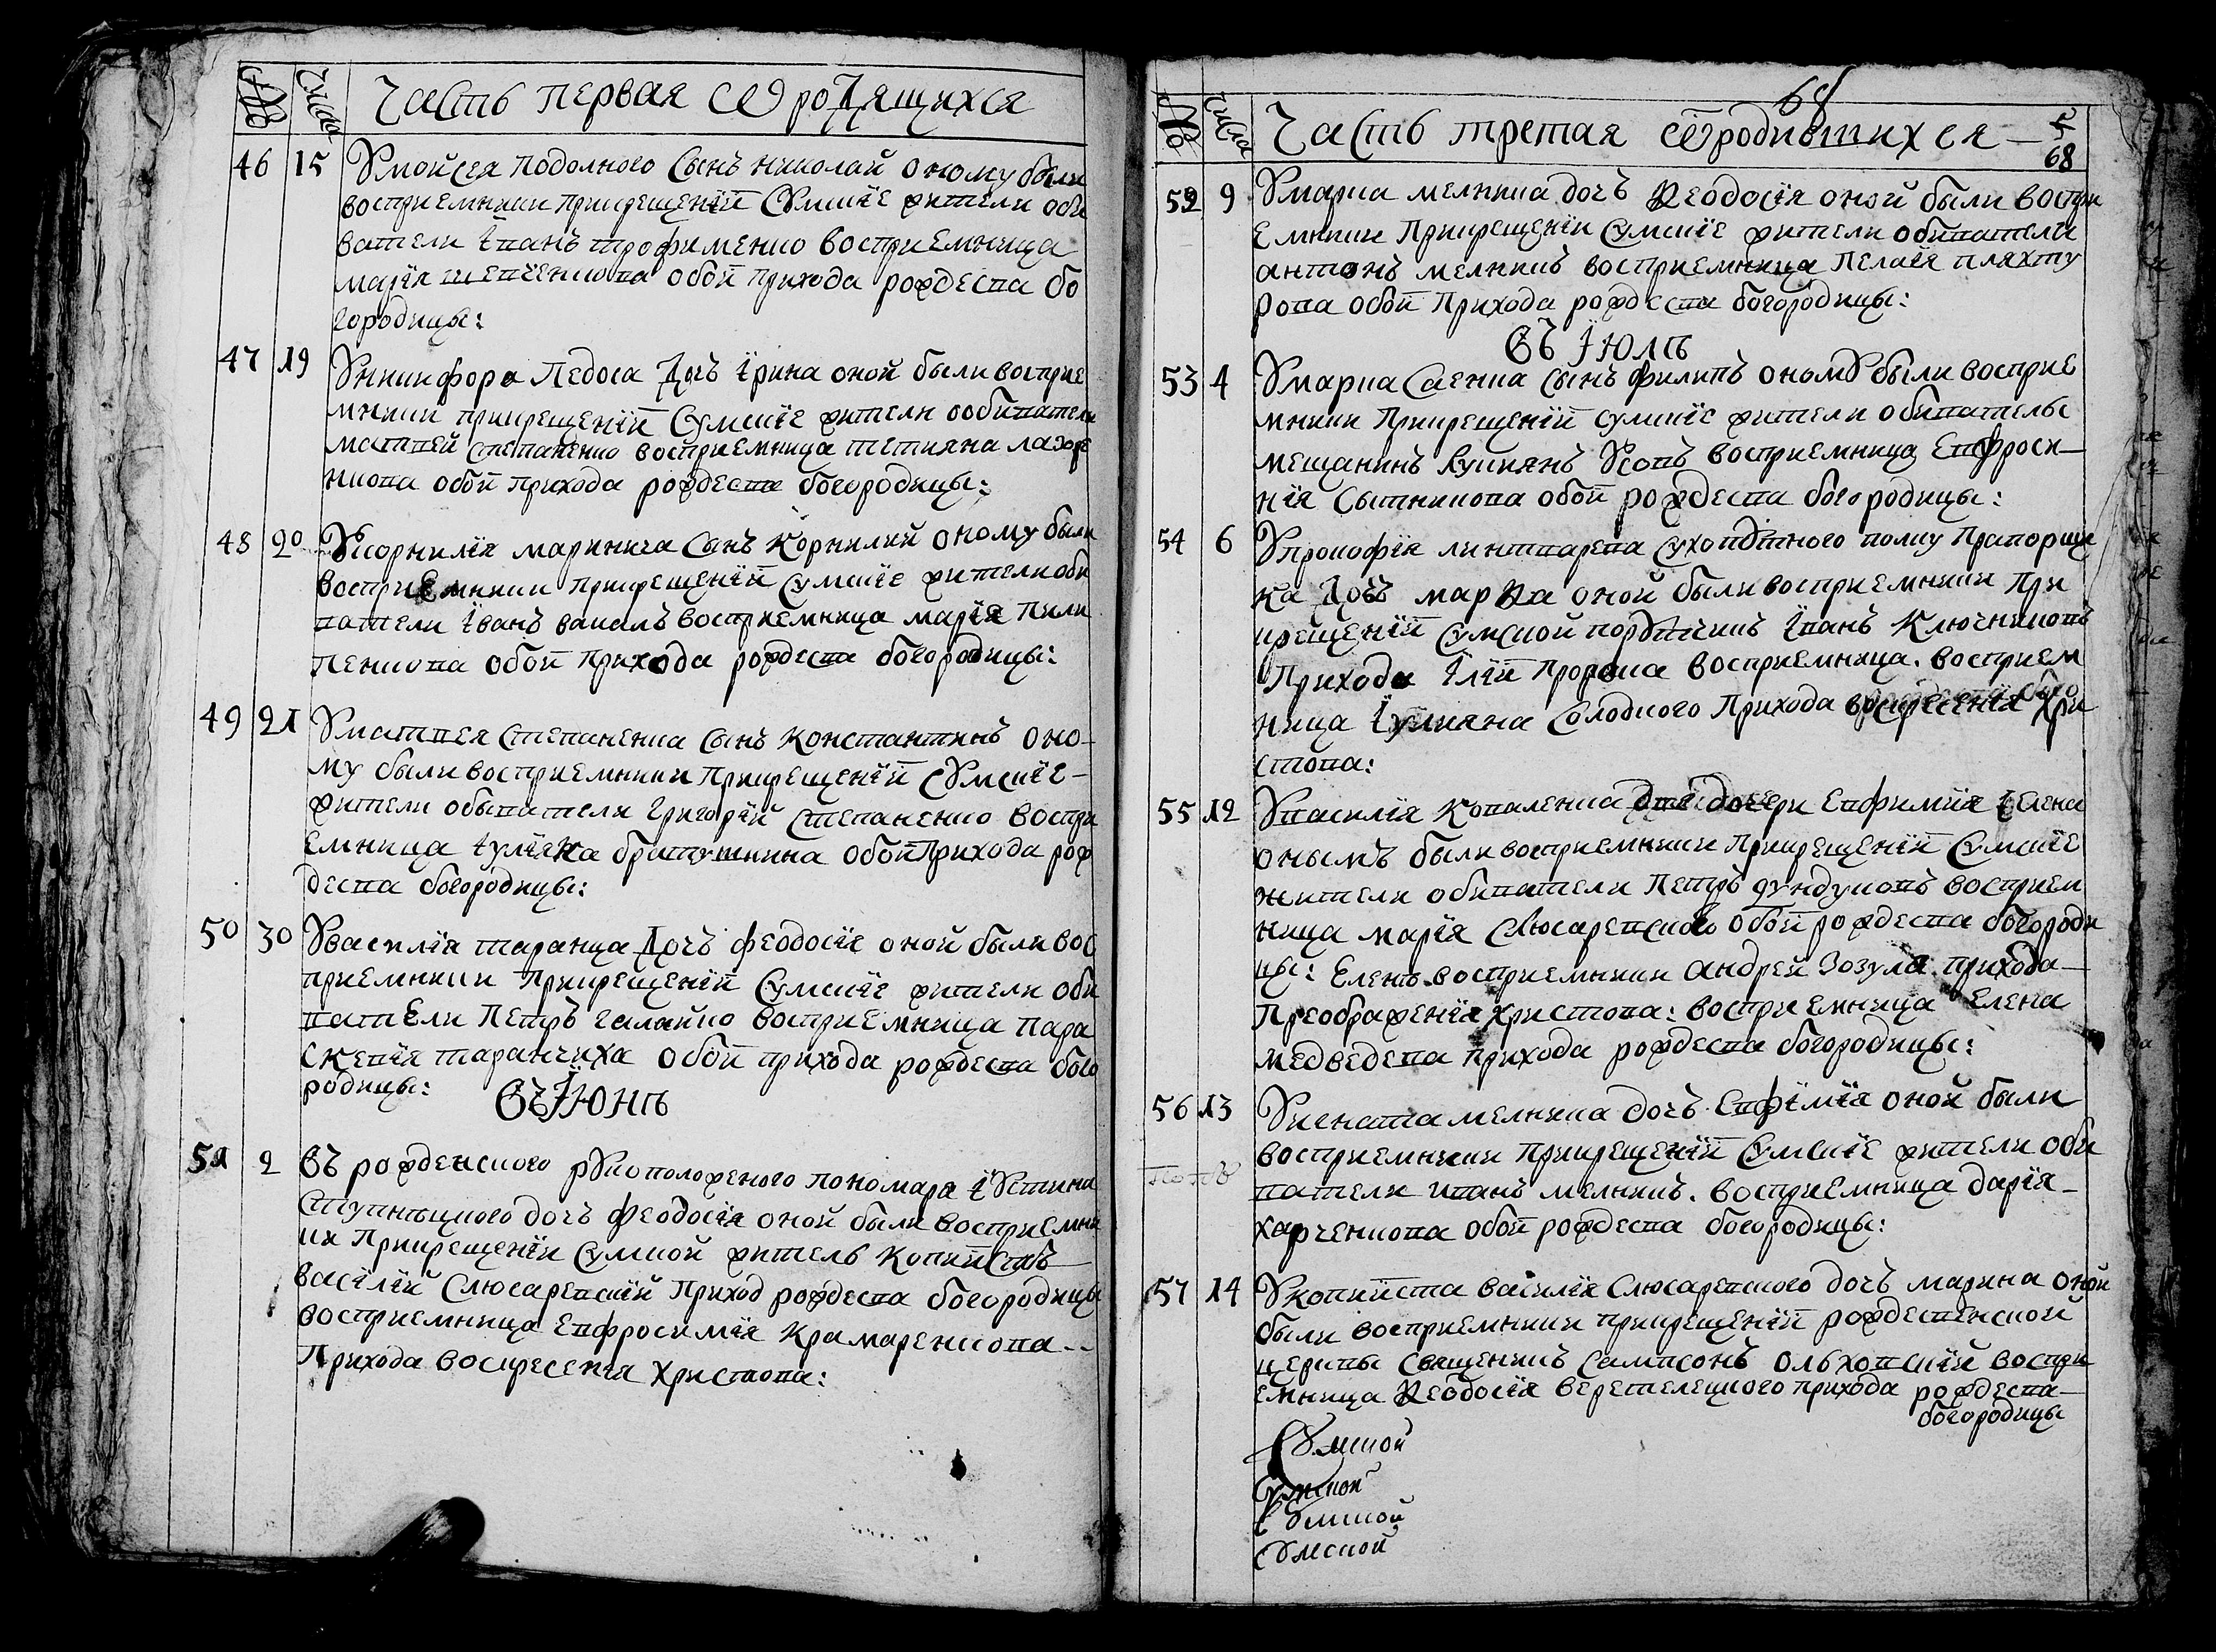 № Числа Часть первая о родящихся
46 15 Умойсея подолного сынъ николай оному были
восприемники прикрещенїй Сумскїе жители оби
ватели їванъ трофименко восприемница
марїя шевченкова обой прихода рождества бо
городицы:
47 19 Уникифора Педоса дочъ їрина оной были восприе
мники прикрещенїй Сумскїе жители обиватели
матвей степаненко восприемница тетияна лазоре
нкова обой прихода рождества богородицы:
48 20 Укорнилїя маринича сынъ корнилий оному были
восприемники прикрещенїй сумскїе жители оби
ватели їванъ вакалъ восприемница марїя пили
пенкова обой прихода рождества богородицы:
49 21 Уматвея степаненка сынъ константинъ оно-
му были восприемники прикрещенїй Сумскїе-
жители обыватели григорїй степаненко воспри
емница їулїяна братушкина обой прихода рож
дества богородицы:
50 30 Увасилїя таранца дочъ феодосїя оной были вос
приемники прикрещенїй Сумскїе жители оби
ватели Петръ галайко восприемница пара
скевїя таранчиха обой прихода рождества бого
родицы:
Въ Їюнѣ
51 2 Въ рожденского рукоположеного пономаря їустина
ступницкого дочъ феодосїя оной были восприемни
ки прикрещенїи Сумской житель копиистъ
васїлїй Слюсаревскїй приход рождества богородицы
восприемница Евфросимїя крамаренкова--
Прихода воскресенїя христова:
68
№ Числа Часть третая о родившихся — 5
68
52 9 Умарка мелника дочъ Феодосїя оной были воспри
емники Прикрещенїи Сумскїе жители обиватели
антонъ мелникъ восприемница Пелагїя пляхту
рова обой Прихода рождества богородицы:
Въ Їюлѣ
53 4 Умарка саенка сынъ филипъ оному были восприе
мники Прикрещенїй сумскїе жители обиватель
мещанинъ Усовъ восприемница Евфроси-
нїя Сытникова обой рождества богородицы:
54 6 Упрокофїя линтварева сухопутного полку Прапорщи
ка дочъ марѳа оной были восприемники При
крещенїй сумской поручикъ їванъ Ключниковъ
Прихода їлїй пророка восприемница. восприем
ница їулияна Солодкого Прихода воскресенїя хри
стова:
55 12 Увасилїя коваленка двѣ дочери Евфимїя Їелена
онымъ были восприемники Прикрещенїй Сумскїе
жители обиватели Петръ дундуковъ восприем
ница марїя Слюсаревского обой рождества богороди
цы: Еленѣ восприемники андрей зозуля прихода-
Преображенїя христова: восприемница Елена
медведева прихода рождества богородицы:
56 13 Уигната мелника дочъ Евфїмїя оной были
восприемники Прикрещенїй Сумскїе жители оби
ватели иванъ мелникъ. восприемница дарїя-
харченкова обой рождества богородицы:
57 14 Укопииста василїя Слюсаревского дочъ марина оной
были восприемники прикрещенїй рождественской
церквы священикъ Сампсонъ ольховскїй воспри
емница Феодосїя веретелецкого прихода рождества-
богородицы
Сумской
Сумской
Сумской
Сумской